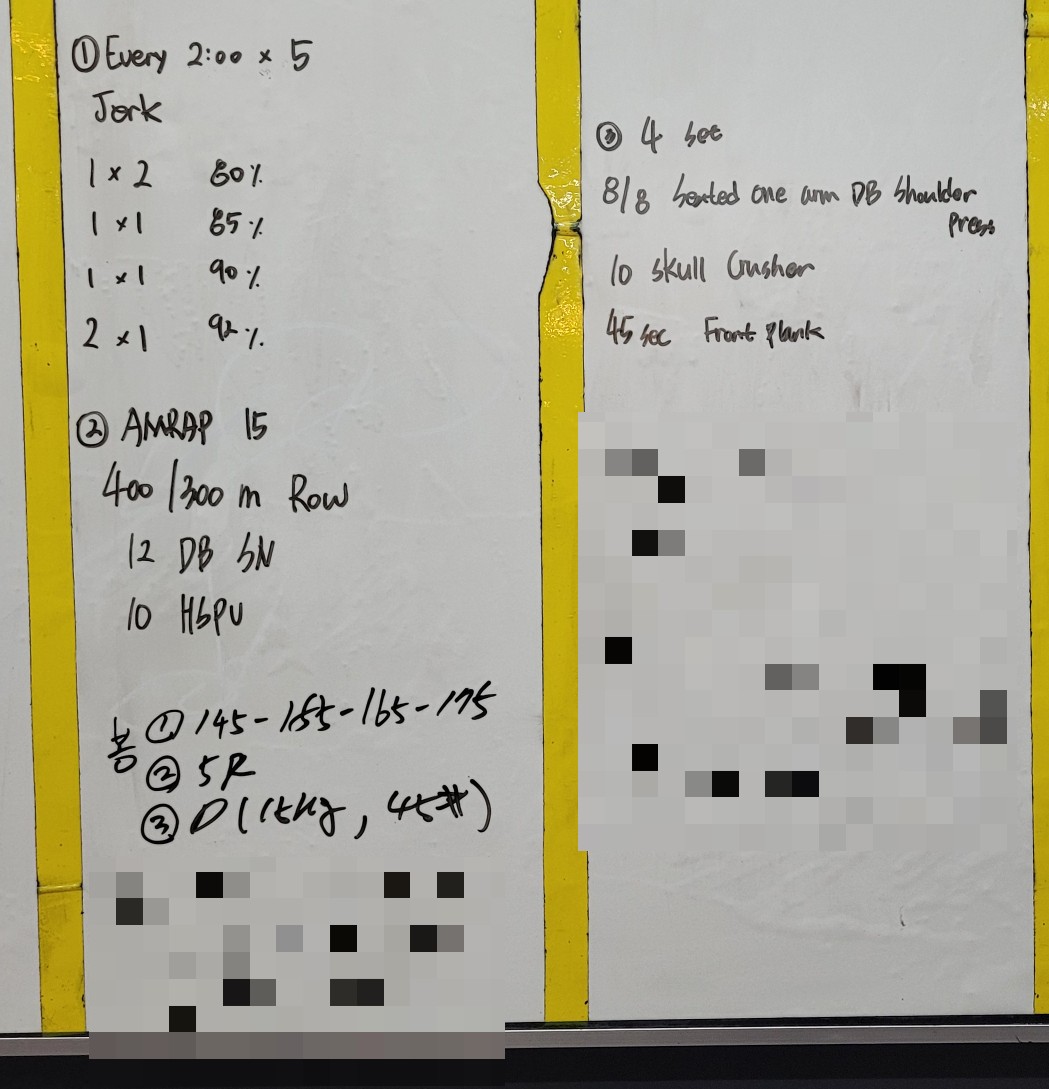 ① Every 2:00 × 5
Jerk
1 × 2 80%
1 × 1 85%
1 × 1 90%
2 × 1 92%
② AMRAP 15
400/300 m Row
12 DB SN
10 HSPU
봉 ① 145-155-165-175
② 5R
③ D (15kg, 45#)
③ 4 set
8/8 Seated one arm DB Shoulder
press
10 skull Crusher
45 sec Front plank